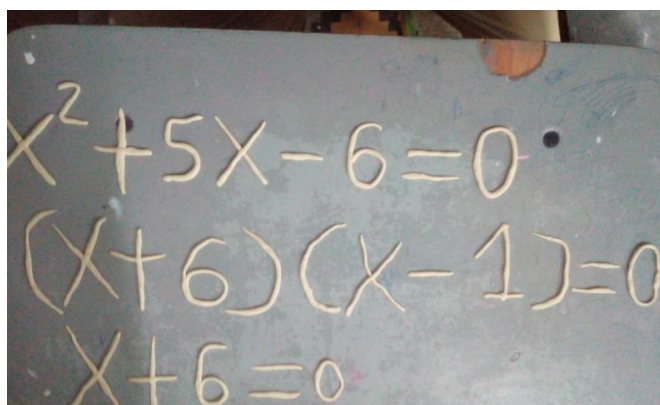 x²+5x-6=0
(x+6)(x-1)=0
x+6=0